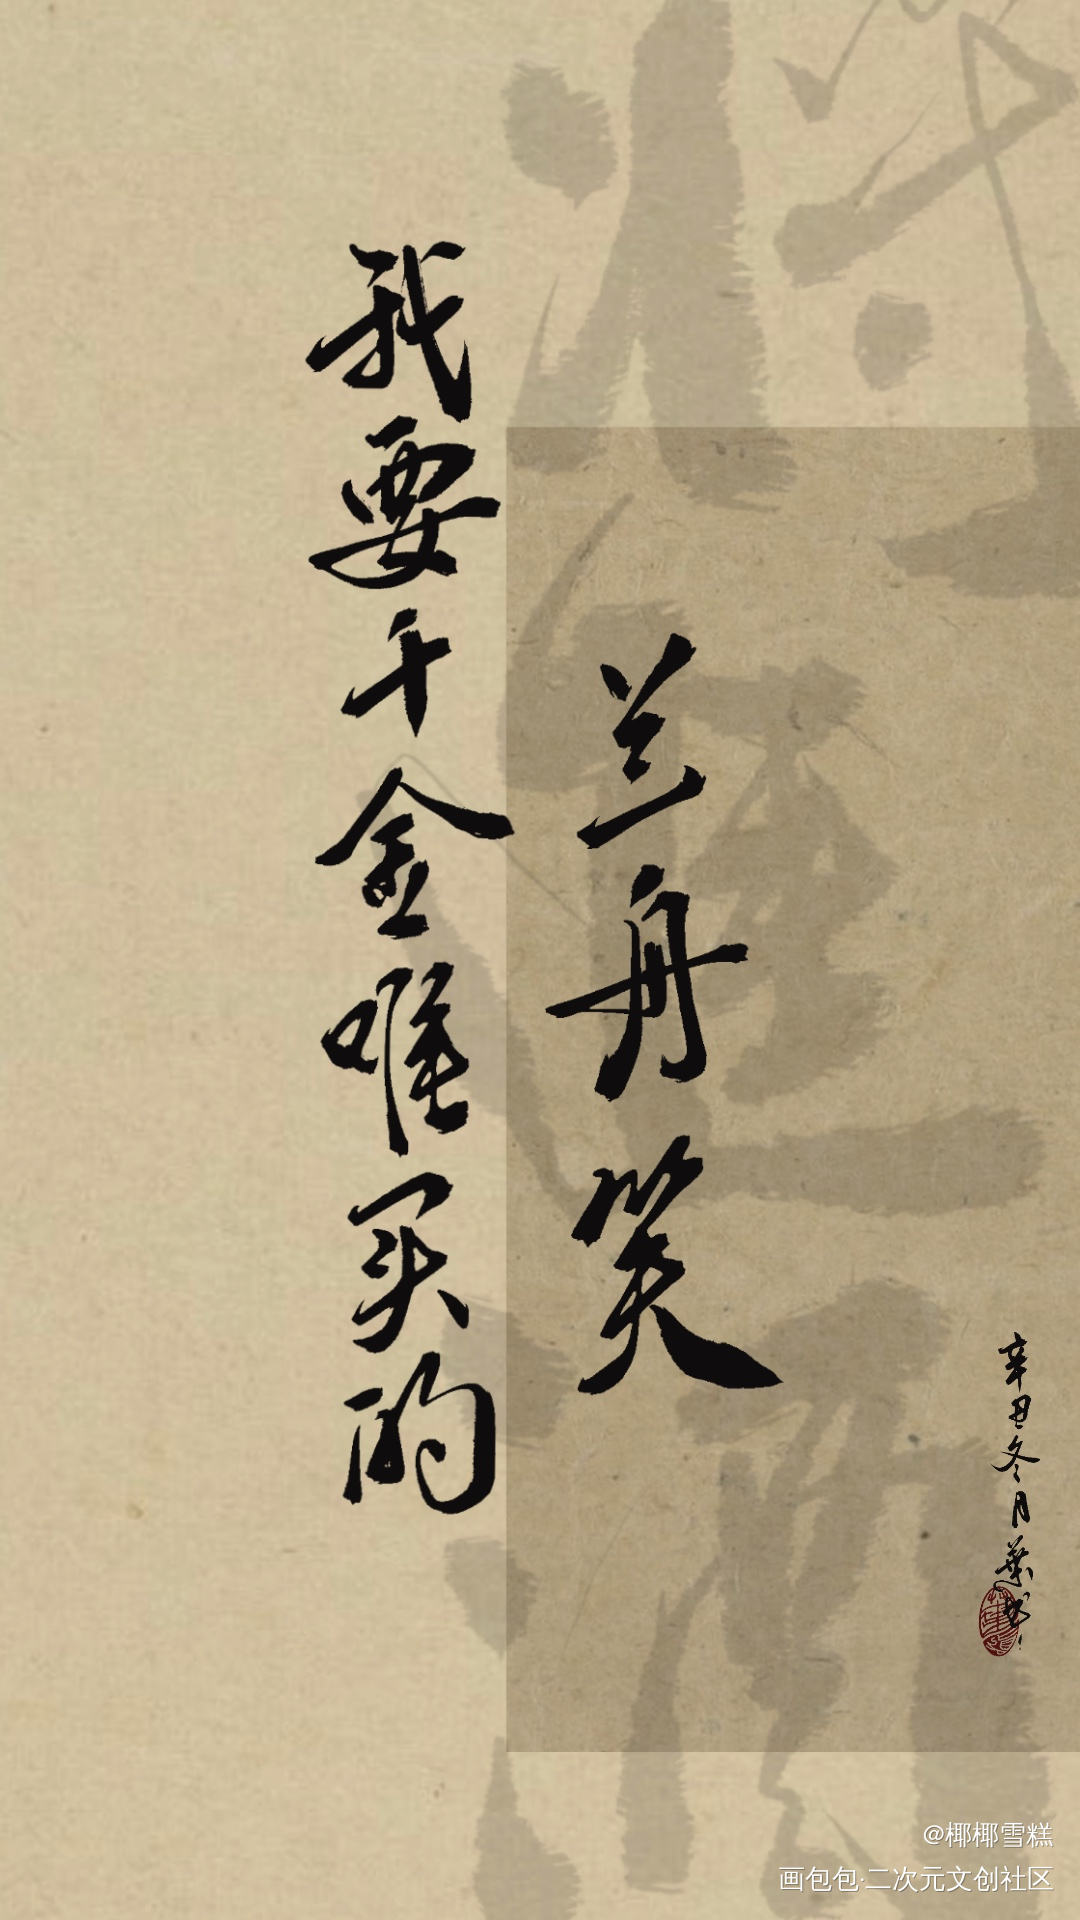 我要千金难买的
兰舟笑
辛丑冬月
@椰椰雪糕
画包包·二次元文创社区